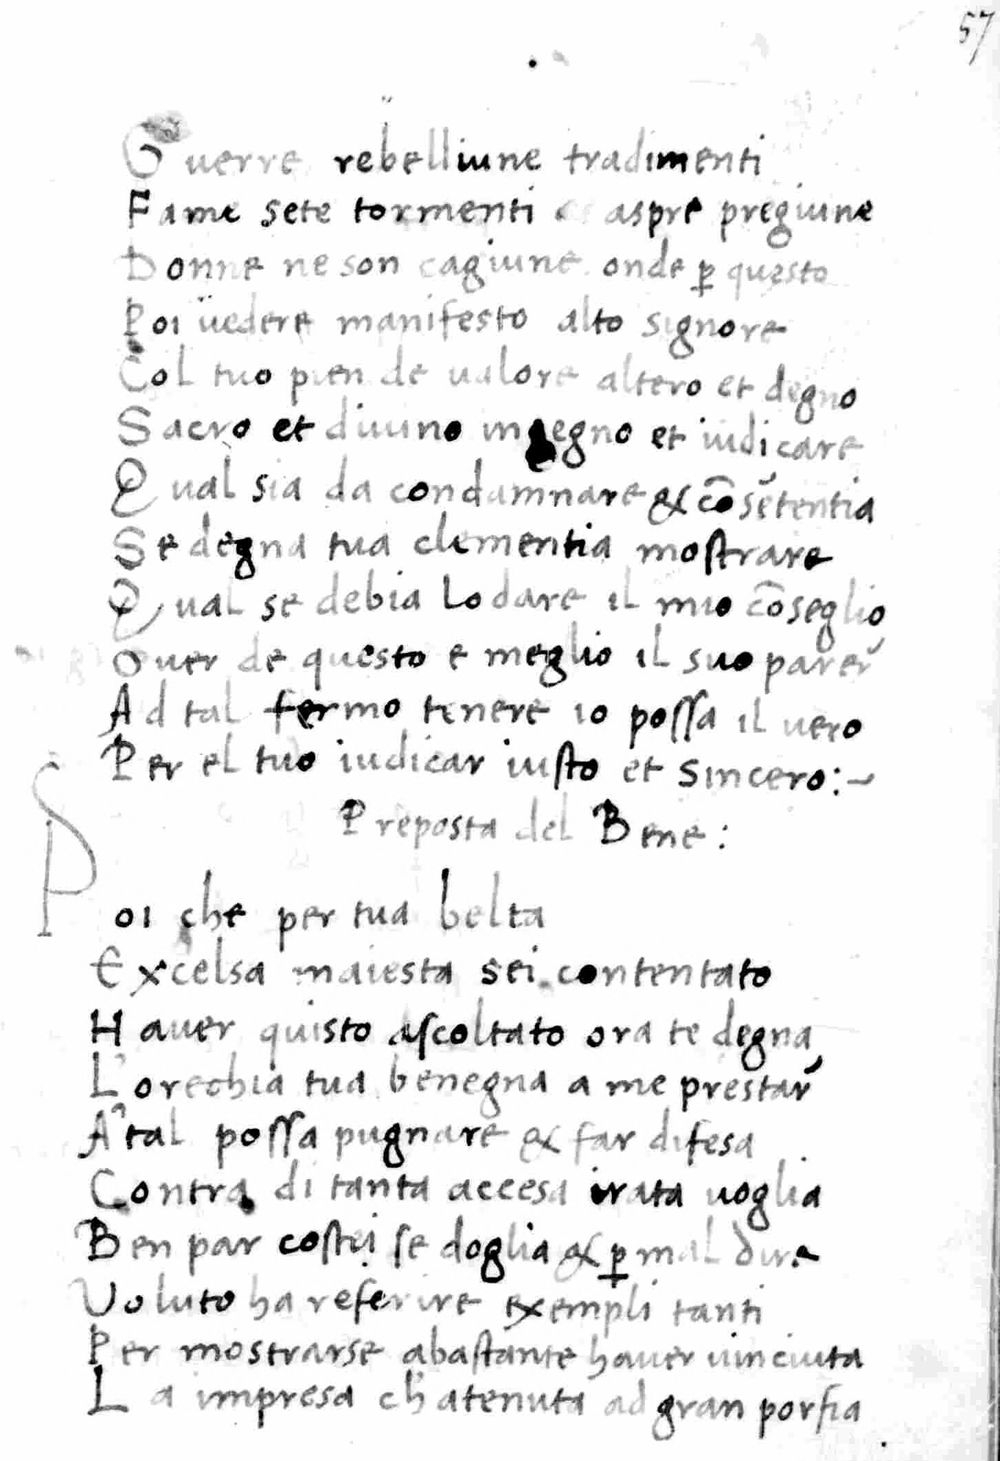 57
Guerre rebelliune tradimenti
Fame sete tormenti et aspre pregiune
Donne ne son cagiune onde ꝑ questo
Poi uedere manifesto alto signore
Col tuo pien de ualore altero et degno
Sacro et diuino ingegno et iudicare
Qual sia da condamnare & cō sētentia
Se degna tua clementia moſtrare
Qual se debia Lodare il mio cōseglio
Ouer de questo e meglio il suo parer
Ad tal fermo tenere io poſſa il uero
Per el tuo iudicar iuſto et sincero:~
Preposta del Bene:
Poi che per tua belta
Excelsa maiesta sei contentato
Hauer quisto aſcoltato ora te degna
L'orechia tua benegna a me prestar
A tal poſſa pugnare & far difesa
Contra di tanta accesa irata uoglia
Ben par coſtei ſe doglia & ꝑ mal dire
Uoluto ha referire exempli tanti
Per mostrarse abaſtante hauer uinciuta
La impresa ch'a tenuta ad gran porfia